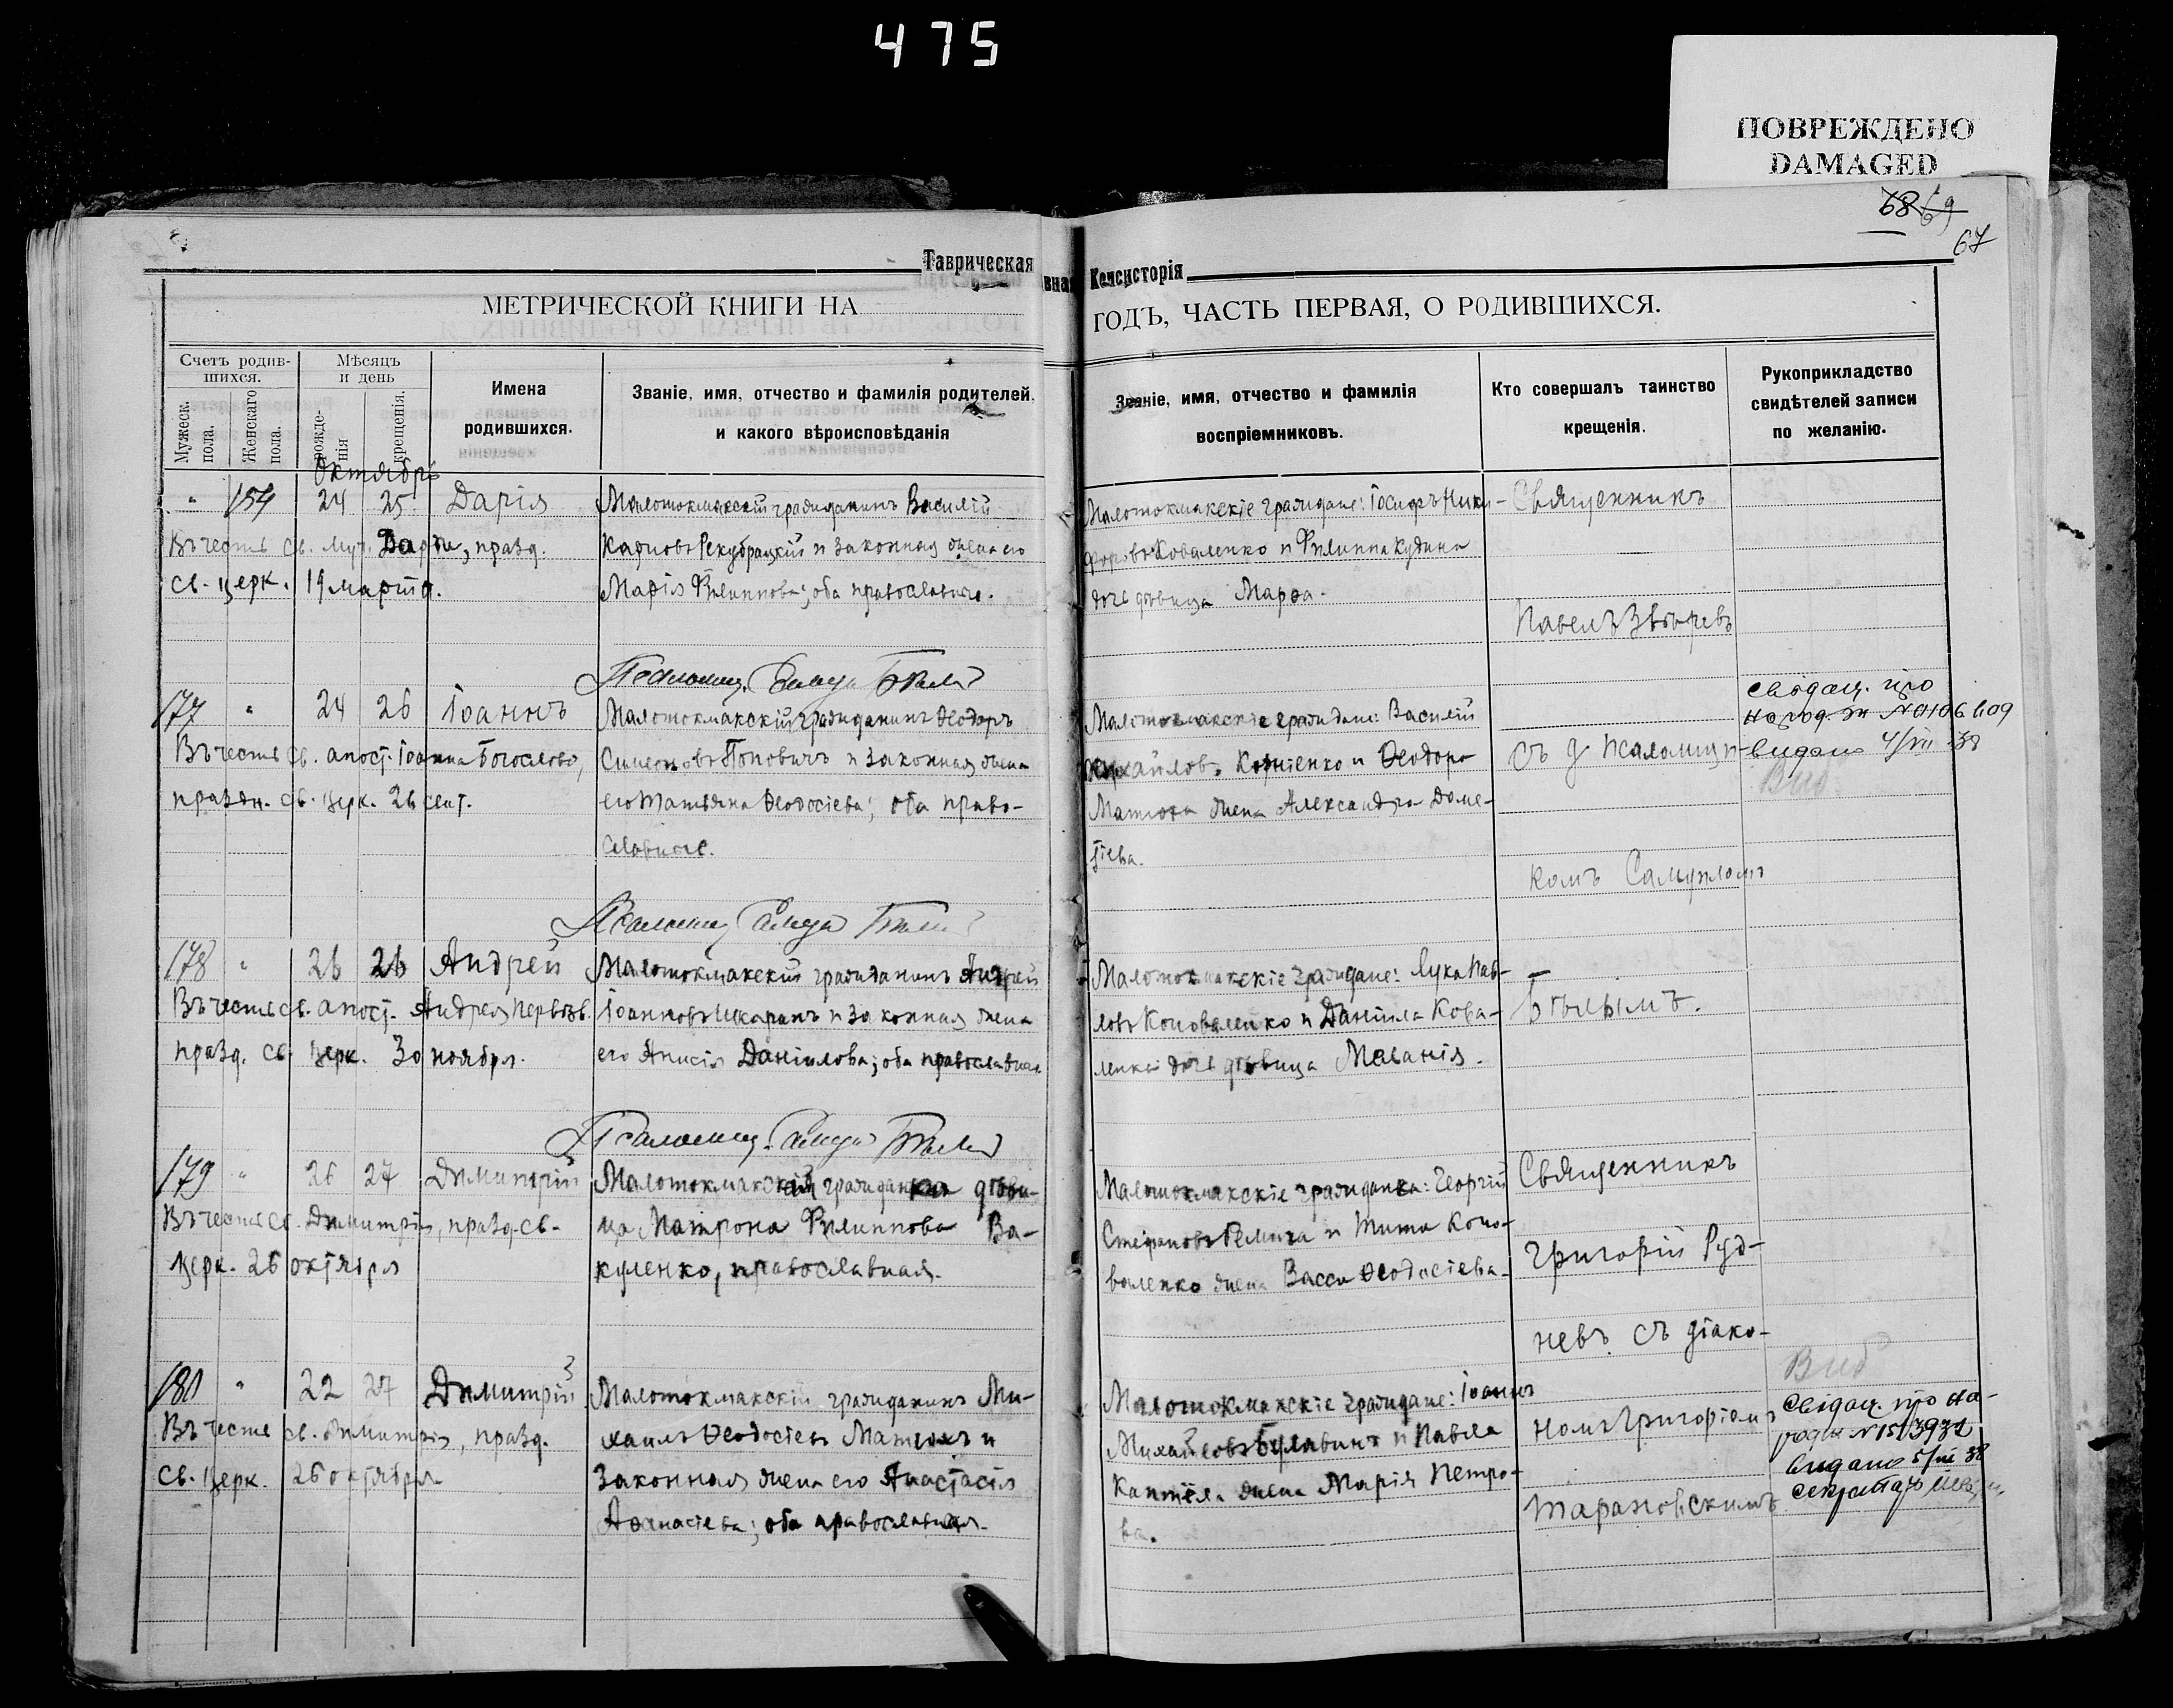 475
ПОВРЕЖДЕНО
DAMAGED
68 69
67
Таврическая
вная Консисторія
МЕТРИЧЕСКОЙ КНИГИ НА
ГОДЪ, ЧАСТЬ ПЕРВАЯ, О РОДИВШИХСЯ.
Счетъ родив-
шихся.
Мужеск.
пола.
Женскаго
пола.
Мѣсяцъ
и день
рожде-
нія
крещенія.
Имена
родившихся.
Званіе, имя, отчество и фамилія родителей.
и какого вѣроисповѣданія
Званіе, имя, отчество и фамилія
воспріемниковъ.
Кто совершалъ таинство
крещенія.
Рукоприкладство
свидѣтелей записи
по желанію.
Октябрь
" 154 24 25 Дарія
Въ честь св. муч. Даріи, празд.
св. церк. 19 марта.
Малотокмакскій гражданинъ Василій
Карповъ и законная жена его
Марія Филиппова; оба православные.
Малотокмакские граждане: Іосифъ Ники-
форовъ Коваленко и Филиппа Кудина
дочь дѣвица Марѳа.
Священникъ
Павелъ Звѣревъ
177 " 24 26 Іоаннъ
Въ честь св. апост. Іоанна Богослова,
праздн. св. церк. 26 сент.
Малотокмакскій гражданинъ Ѳеодоръ
Симеоновъ Поповичъ и законная жена
его Татьяна Ѳеодосіева; оба право-
славные.
Малотокмакскіе граждане: Василій
Михайловъ Корніенко и Ѳеодора
Матюха жена Александра Доме-
тіева.
съ псаломщи-
комъ Самуиломъ
свідоц. про
народ. за №
видано 4/VII 38
Вид.
178 " 26 26 Андрей
Въ честь св. апост. Андрея Первозв.
празд. св. церк. 30 ноября.
Малотокмакскій гражданинъ Андрей
Іоанновъ Шкарапъ и законная жена
его Анисія Даніилова; оба православные
Малотокмакскіе граждане: Лука Пав-
ловъ Коноваленко и Даніила Кова-
ленка дочь дѣвица Меланія.
Бѣлымъ.
179 " 26 27 Димитрій
Въ честь св. Димитрія, празд. св.
церк. 26 октября
Малотокмакская гражданка дѣви-
ца Матрона Филиппова Ва-
куленко, православная.
Малотокмакскіе граждане: Георгій
Стефановъ и Тита Коно-
валенко жена Васса Ѳеодосіева.
Священникъ
Григорій Руд-
невъ съ діако-
180 " 22 27 Димитрій 3
Въ честь св. Димитрія, празд.
св. церк. 26 октября
Малотокмакскій гражданинъ Ми-
хаилъ Ѳеодосіевъ Матюхъ и
законная жена его Анастасія
Аѳанасіева; оба православные.
Малотокмакскіе граждане: Іоаннъ
Михайловъ Булавинъ и Павла
жена Марія Петро-
ва.
номъ Григоріемъ
Тарановскимъ
Вид
Свідоц. про на-
родж №1513932
видано 5/VII 38